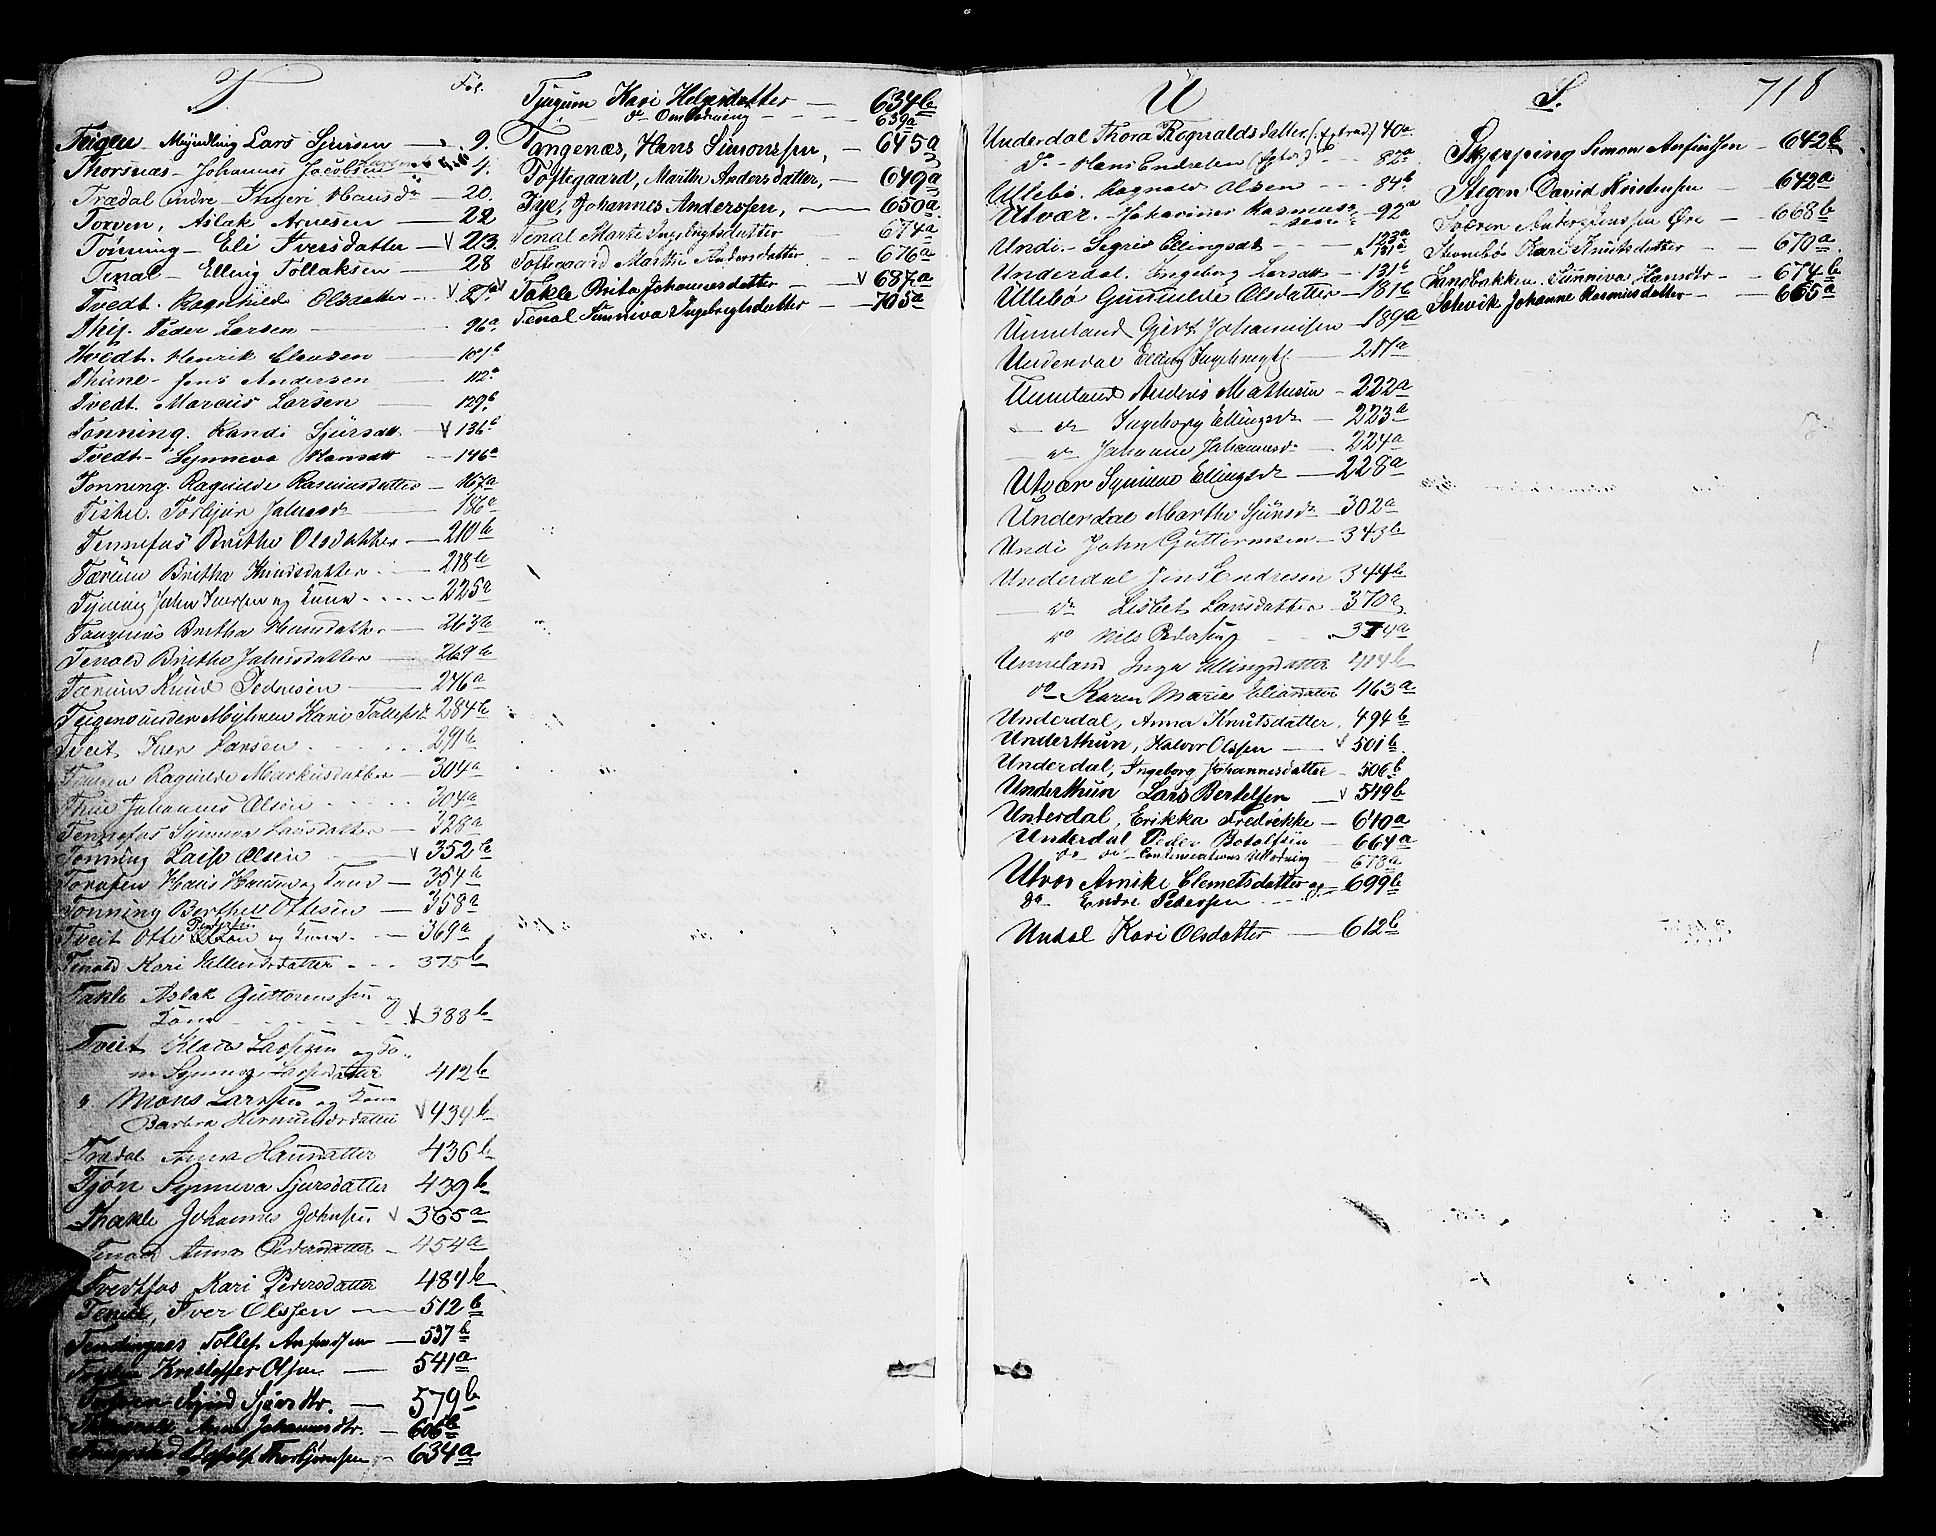 T
Fol.
Teigen Myndling Lars Sjursen — 9.
Thorsnæs - Johannes Jacobsen 4.
Trædal indre - Ingeri Hansdr 20.
Torven, Aslak Arnesen — 22
Tønning - Eli Iversdatter — V 23.
Tenal - Elling Tollaksen — 28
Tvedt. Ragnhilde Olsdatter V 87a
Peder Larsen — 96a
Tvedt. Henrik Clausen — 101b
Thune - Jens Andersen — 112a
Tvedt. Marcus Larsen — 129b
Tonning. Randi Sjursdtt V 136b
Tvedt - Synneva Hansdtt — 146a
Tonning. Ragnilde Rasmusdatter — 167a
Torbjør 186a
Tennefos Brithe Olsdatter — 210b
Tærum Britha Knudsdatter 218b
John Iversen og Kone 225a
Tangenæs Britha Hansdatter — 263b
Tenold Brithe Johnsdatter — 269b
Tærum Knud Pedersen — 276a
Teigen under Myhren Kari Tollefsdr 284b
Tveit Iver Hansen 291b
Ragnilde Markusdatter — 304a
Johannes Olsen 304a
Tennefos Synneva Larsdatter — 328a
Tonning Lasse Olsen V 352b
Hans Hansen og Kone — 354a
Tonning Berthel Ottesen — 358a
Tveit Otto Pedersen og Kone 369a
Tenold Kari Ellendsdatter 375b
Takle Aslak Guttormssen og
Kone V 388b
Tveit Klaus Lassesen og Ko-
ne Synneva Lassesdatter 412b
" Mons Larssen og Kone
Barbra Hermundsdatter V 434b
Trædal Anna Hansdatter 436b
Tjøn Synneva Sjursdatter 439b
Thakle Johannes Johnsen V 365a
Tenold Anna Pedersdatter — 454a
Tvedtfos Kari Pedersdatter 484b
Tenold, Iver Olssen — 512b
Tendingnes Tollef Ansendsen — 537b
Kristoffer Olsen — 541a
Torven Sjurd Sjursdtr. — 579b
Anna Johannesdtr. — 606b
Botolf Thorbjørnsen — 634a
Tjugum Kari Helgesdatter — 634b
do Omlodning 639a
Tangenæs, Hans Simonssen, — 645a
Toftegaard, Marthe Andersdatter, — 649a
Tye, Johannes Anderssen, — 650a
Tenal Marte Ingebrigtsdatter 674a
Toftegaard Marthe Andersdatter — 676a
V Takle Brita Johannesdatter — V 687a
Tenal Sunneva Ingebrigtsdatter — 705a
U
Underdal Thora Rognaldsdatter (Extrad) 40a
do - Hans Endresen 82a
Ullebø. Rognald Olsen 84b
Utvær. Johannes Rasmus-
sen 92a
Undi - Sigrid Ellingsdtt — 123a
Underdal. Ingeborg Larsdtt — 131b
Ullebø Gunnilde Olsdatter — 181b
Unneland Gjert Johannesen — 189a
Underdal Elling Ingebregts. — 217a
Unneland Anders Mathisen — 222a
— do Ingeborg Ellingsdr — 223a
— do Johanne Johannesdr — 224a
Utvær Synneve Ellingsdr — 228a
Underdal Marthe Sjursdr — 302a
Undi John Guttormsen — 343b
Underdal Jens Endresen 344b
— do Lisbet Larsdatter — 370a
do Nils Pedersen 374a
Unneland Inga Ellingsdatter 414b
do Karen Marie Eliasdatter 463a
Underdal, Anna Knutsdatter, 494b
Underthun, Halvor Olssen — V 501b
Underdal, Ingeborg Johannesdatter — 506b
Underthun Lars Bertelsen — V 549b
Underdal, Erikka Fredrikke — 610a
Underdal Peder Botolfsen — 664a
do do Condemnations Utlodning 678a
Utvær Annike Clemetsdatter og — 699b
do Endre Petersen
Undal Kari Olsdatter — 612b
S.
718
Skjerping Simon Ansinssen — 642b
Stegen David Kristensen — 642a
Anders Jenssen Øre — 668b
Stornebø Kari Knutsdatter — 670a
Sandbakken Sunniva Hansdtr — 674b
Solevik Johanne Rasmusdatter — 665a